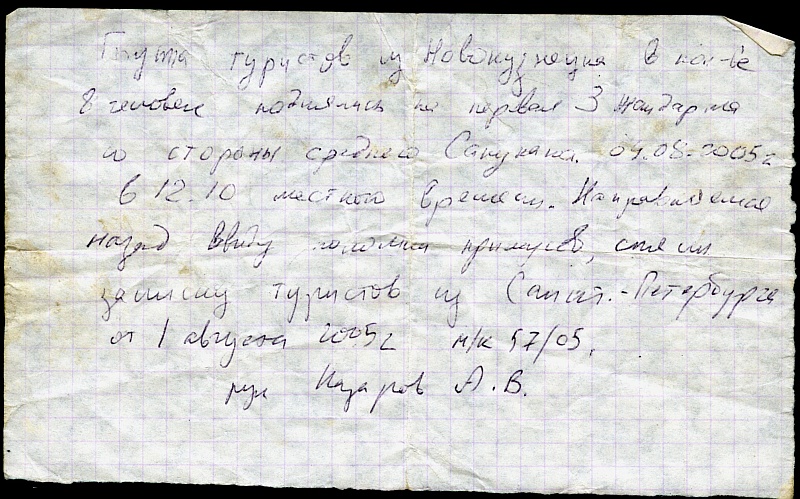 Группа туристов из Новокузнецка в кол-ве
8 человек поднялись на перевал 3 Жандарма
со стороны среднего Сакукана. 04.08.2005г
в 12.10 местного времени. Направляемся
назад ввиду поломки примусов, сняли
записку туристов из Санкт.-Петербурга
от 1 августа 2005г м/к 57/05.
рук Назаров А.В.